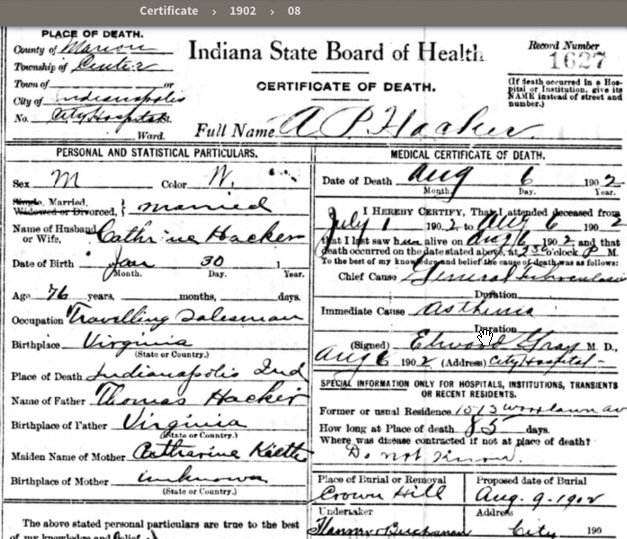 Certificate › 1902 › 08
PLACE OF DEATH.
County of Marion
Township of Center
Town of or
City of Indianapolis
No. City Hospital
Ward.
Indiana State Board of Health
CERTIFICATE OF DEATH.
Full Name A P Hacker.
Record Number
1627
(If death occurred in a Hos-
pital or Institution, give its
NAME instead of street and
number.)
PERSONAL AND STATISTICAL PARTICULARS.
Sex M Color W.
Single, Married,
Widowed or Divorced, } married
Name of Husband
or Wife, Cathrine Hacker
Date of Birth Jan 30 1
Month. Day. Year.
Age 76 years, months, days.
Occupation Travelling Salesman
Birthplace Virginia
(State or Country.)
Place of Death Indianapolis Ind
Name of Father Thomas Hacker
Birthplace of Father Virginia
(State or Country.)
Maiden Name of Mother Catharine
Birthplace of Mother unknown
(State or Country.)
The above stated personal particulars are true to the best
of my knowledge and belief.
MEDICAL CERTIFICATE OF DEATH.
Date of Death Aug 6 1902
Month. Day. Year.
I HEREBY CERTIFY, That I attended deceased from
July 1 1902, to Aug 6 1902
that I last saw him alive on Aug 6, 1902 and that
death occurred on the date stated above, at o'clock P. M.
To the best of my knowledge and belief the cause of death was as follows:
Chief Cause General Tuberculosis
Duration
Immediate Cause Asthenia
Duration
(Signed) Elwood Gray M. D.,
Aug 6 1902 (Address) City Hospital
SPECIAL INFORMATION ONLY FOR HOSPITALS, INSTITUTIONS, TRANSIENTS
OR RECENT RESIDENTS.
Former or usual Residence 1513 Woodlawn av
How long at Place of death 85 days.
Where was disease contracted if not at place of death?
Do not know.
Place of Burial or Removal
Crown Hill
Proposed date of Burial
Aug. 9-1902
Undertaker
Flanner & Buchanan
Address
City 190